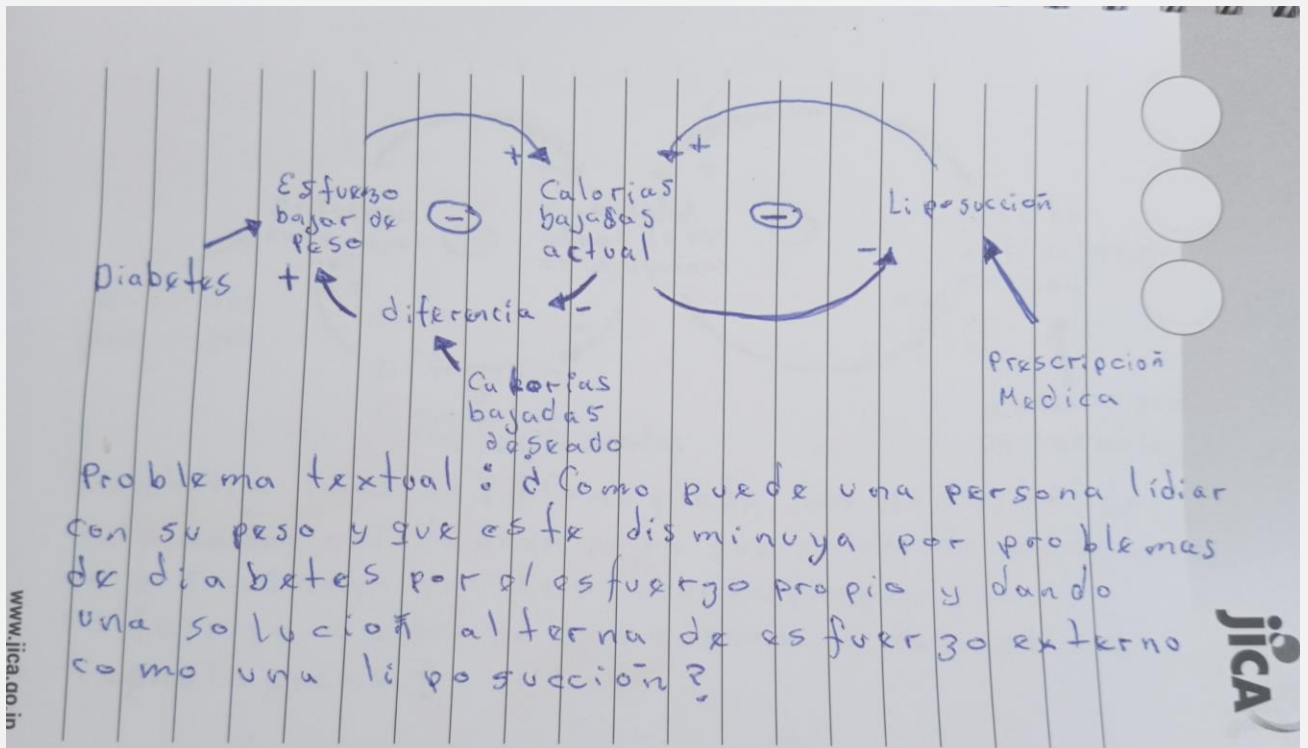 +
+
Esfuerzo
bajar de
peso
-
Calorias
bajadas
actual
-
Liposucción
-
Diabetes
+
diferencía
-
Calorias
bajadas
deseado
Prescripcion
Medica
Problema textual : ¿Como puede una persona lídiar
con su peso y que este disminuya por problemas
de diabetes por el esfuerzo propio y dando
una solución alterna de esfuerzo externo
como una liposucción?
www.jica.go.jp
jICA